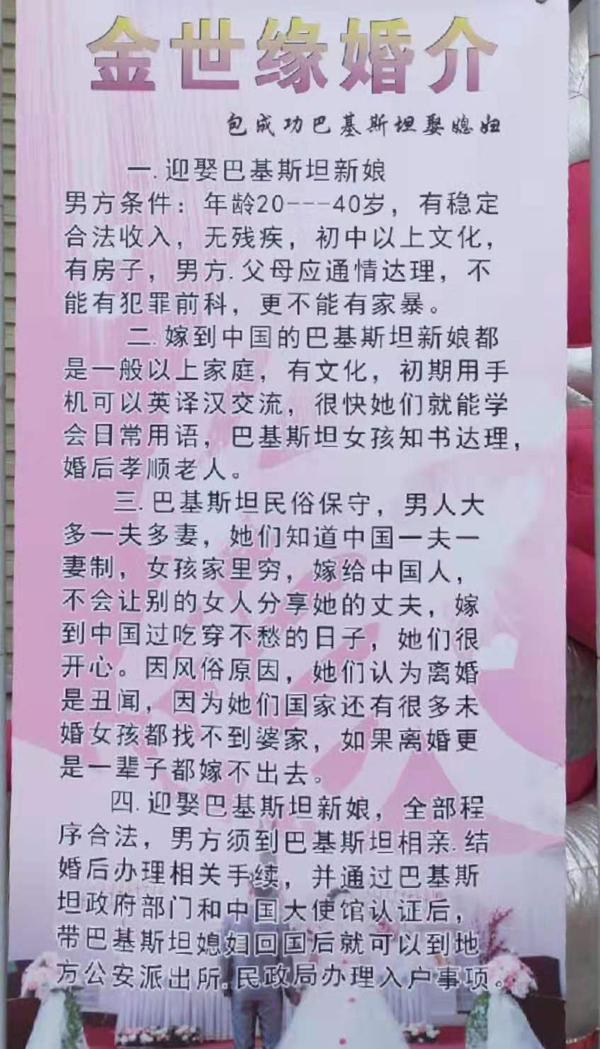 金世缘婚介
包成功巴基斯坦娶媳妇
一.迎娶巴基斯坦新娘
男方条件：年龄20---40岁，有稳定
合法收入，无残疾，初中以上文化，
有房子，男方.父母应通情达理，不
能有犯罪前科，更不能有家暴。
二.嫁到中国的巴基斯坦新娘都
是一般以上家庭，有文化，初期用手
机可以英译汉交流，很快她们就能学
会日常用语，巴基斯坦女孩知书达理，
婚后孝顺老人。
三.巴基斯坦民俗保守，男人大
多一夫多妻，她们知道中国一夫一
妻制，女孩家里穷，嫁给中国人，
不会让别的女人分享她的丈夫，嫁
到中国过吃穿不愁的日子，她们很
开心。因风俗原因，她们认为离婚
是丑闻，因为她们国家还有很多未
婚女孩都找不到婆家，如果离婚更
是一辈子都嫁不出去。
四.迎娶巴基斯坦新娘，全部程
序合法，男方须到巴基斯坦相亲.结
婚后办理相关手续，并通过巴基斯
坦政府部门和中国大使馆认证后，
带巴基斯坦媳妇回国后就可以到地
方公安派出所.民政局办理入户事项。